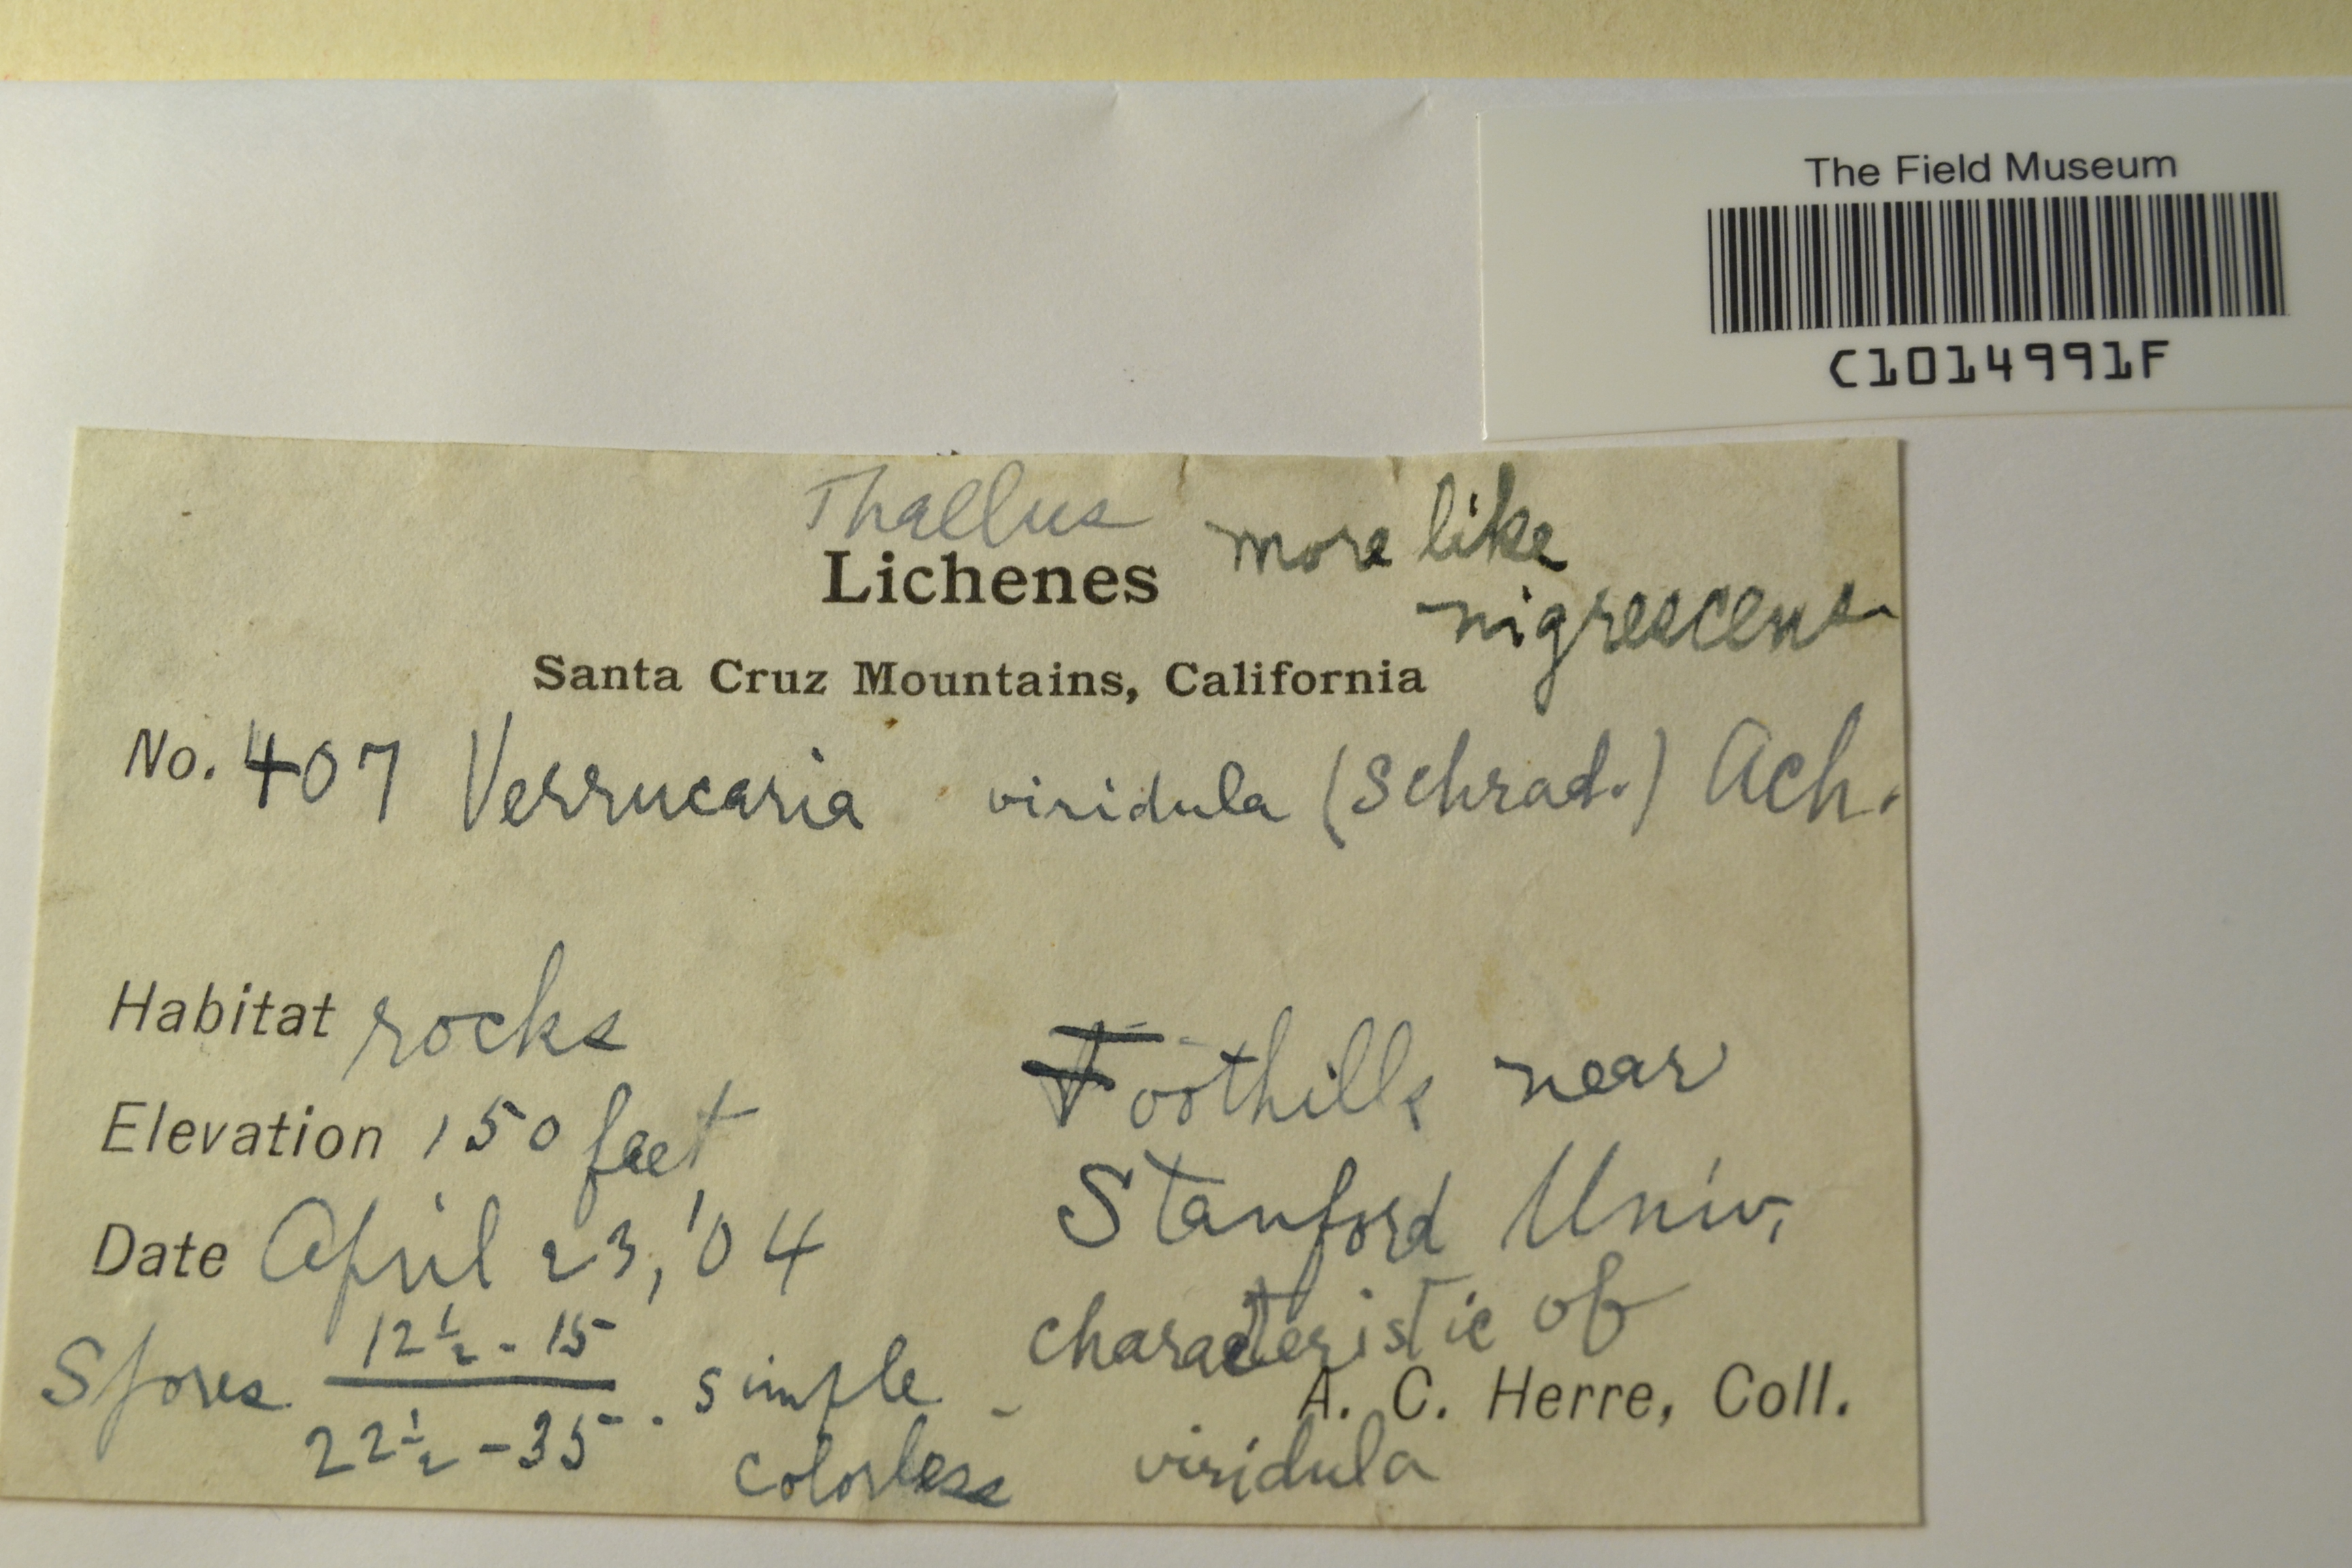 The Field Museum
C1014991F
Thallus more like
nigrescens
Lichenes
Santa Cruz Mountains, California
No. 407 Verrucaria viridula (Schrad.) Ach.
Habitat rocks
Elevation 150 feet
Date April 23, '04
Foothills near
Stanford Univ.
Spores 12½ - 15 / 22½ - 35 . simple -
colorless
characteristic of
viridula
A. C. Herre, Coll.